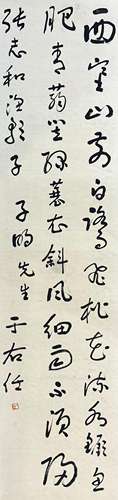 西塞山前白鷺飛桃花流水鱖魚
肥青蒻笠綠蓑衣斜風細雨不須歸
張志和漁歌子 子明先生 于右任